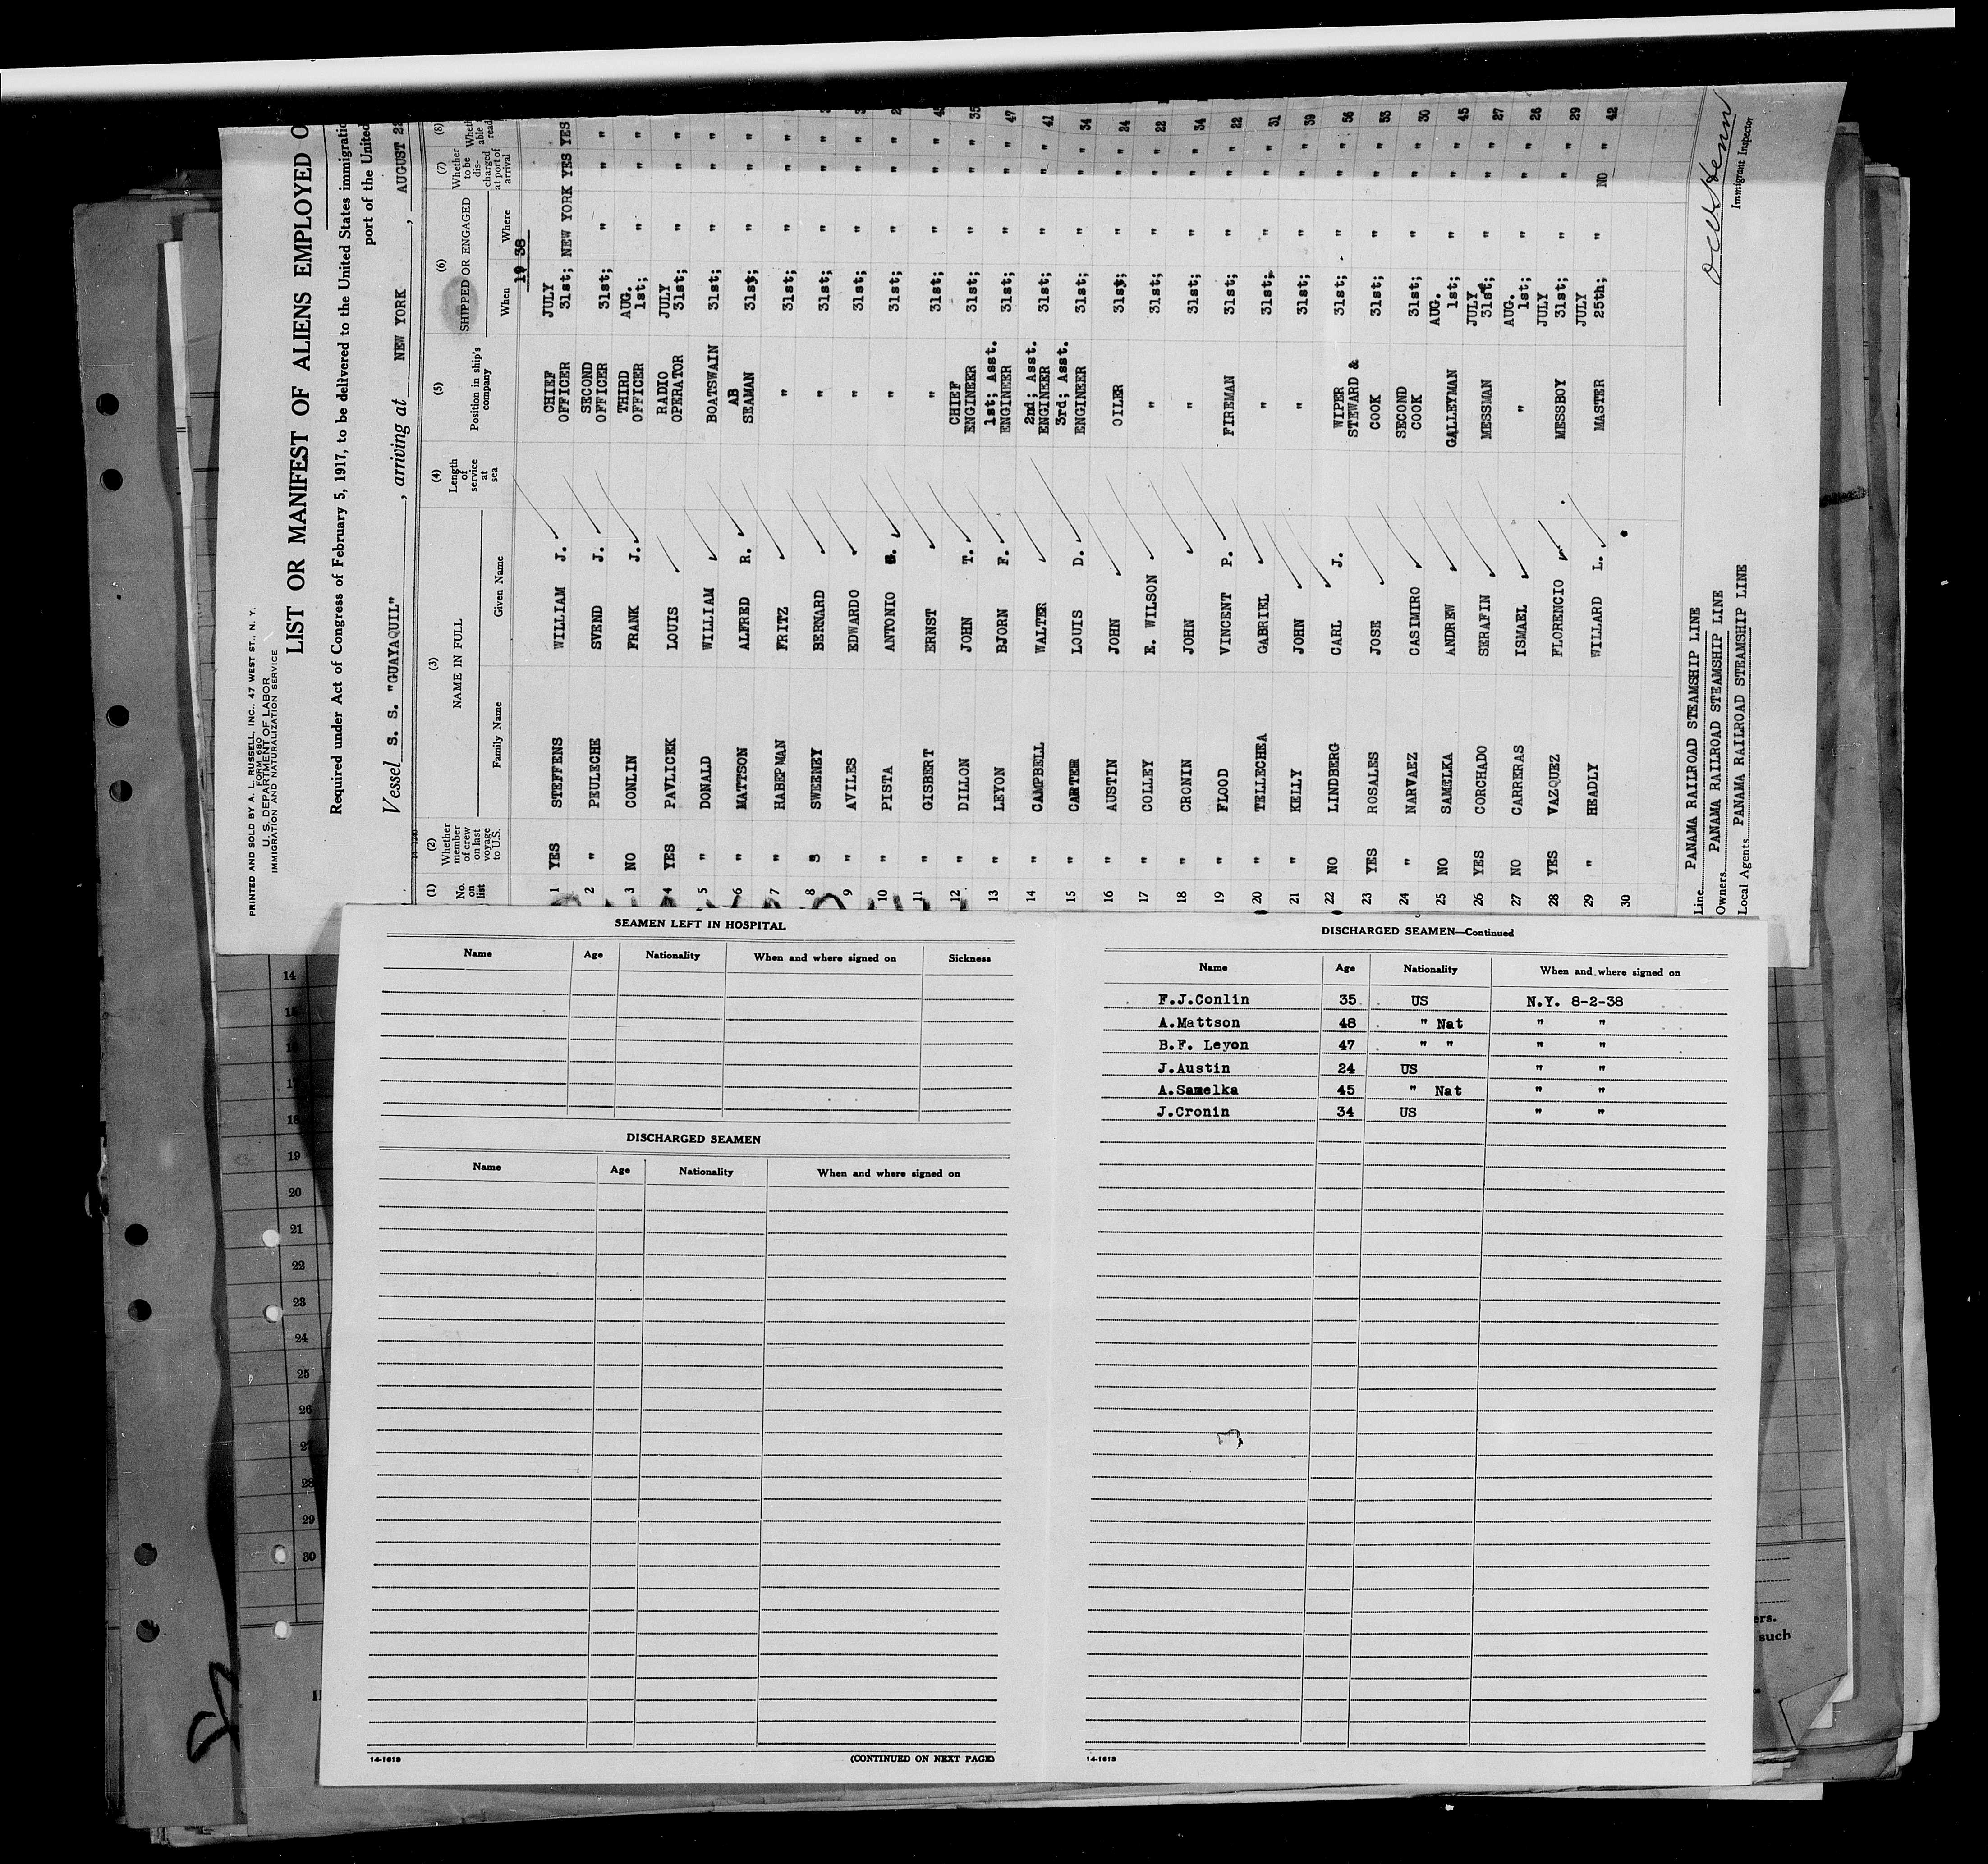 PRINTED AND SOLD BY A. L. RUSSELL, INC., 47 WEST ST., N. Y.
FORM 680
U. S. DEPARTMENT OF LABOR
IMMIGRATION AND NATURALIZATION SERVICE
LIST OR MANIFEST OF ALIENS EMPLOYED O
Required under Act of Congress of February 5, 1917, to be delivered to the United States immigratio
port of the United
Vessel S. S. "GUAYAQUIL", arriving at NEW YORK, AUGUST
(1) No. on list (2) Whether member of crew on last voyage to U.S. (3) NAME IN FULL Family Name Given Name (4) Length of service at sea (5) Position in ship's company (6) SHIPPED OR ENGAGED When Where (7) Whether to be discharged at port of arrival (8)
1938
1 YES STEFFENS WILLIAM J. CHIEF OFFICER JULY 31st; NEW YORK YES YES
2 " PEULECHE SVEND J. SECOND OFFICER 31st; " " "
3 NO CONLIN FRANK J. THIRD OFFICER AUG. 1st; " " "
4 YES PAVLICEK LOUIS RADIO OPERATOR JULY 31st; " " "
5 " DONALD WILLIAM BOATSWAIN 31st; " " "
6 " MATTSON ALFRED R. AB SEAMAN 31st; " " "
7 " HABEPMAN FRITZ " 31st; " " "
8 SWEENEY BERNARD " 31st; " " "
9 " AVILES EDWARDO " 31st; " " "
10 " PISTA ANTONIO " 31st; " " "
11 " GISBERT ERNST " 31st; " " "
12 " DILLON JOHN T. CHIEF ENGINEER 31st; " " " 35
13 " LEYON BJORN F. 1st; Asst. ENGINEER 31st; " " " 47
14 " CAMPBELL WALTER 2nd; Asst. ENGINEER 31st; " " " 41
15 " CARTER LOUIS D. 3rd; Asst. ENGINEER 31st; " " " 34
16 " AUSTIN JOHN OILER 31st; " " " 24
17 " COLLEY E. WILSON " 31st; " " " 22
18 " CRONIN JOHN " 31st; " " " 34
19 " FLOOD VINCENT P. FIREMAN 31st; " " " 22
20 " TELLECHEA GABRIEL " 31st; " " " 31
21 " KELLY JOHN " 31st; " " " 39
22 NO LINDBERG CARL J. WIPER 31st; " " " 56
23 YES ROSALES JOSE STEWARD & COOK 31st; " " " 53
24 " NARVAEZ CASIMIRO SECOND COOK 31st; " " " 30
25 NO SAMELKA ANDREW GALLEYMAN AUG. 1st; " " " 45
26 YES CORCHADO SERAFIN MESSMAN JULY 31st; " " " 27
27 NO CARRERAS ISMAEL " AUG. 1st; " " " 28
28 YES VAZQUEZ FLORENCIO MESSBOY JULY 31st; " " " 29
29 " HEADLY WILLARD L. MASTER JULY 25th; " NO " 42
30
Line PANAMA RAILROAD STEAMSHIP LINE
Owners PANAMA RAILROAD STEAMSHIP LINE
Local Agents PANAMA RAILROAD STEAMSHIP LINE
Immigrant Inspector
14
15
16
17
18
19
20
21
22
23
24
25
26
27
28
29
30
SEAMEN LEFT IN HOSPITAL
Name Age Nationality When and where signed on Sickness
DISCHARGED SEAMEN
Name Age Nationality When and where signed on
14-1613 (CONTINUED ON NEXT PAGE)
DISCHARGED SEAMEN—Continued
Name Age Nationality When and where signed on
F.J.Conlin 35 US N.Y. 8-2-38
A.Mattson 48 " Nat " "
B.F. Leyon 47 " " " "
J.Austin 24 US " "
A.Samelka 45 " Nat " "
J.Cronin 34 US " "
14-1613
ers.
such